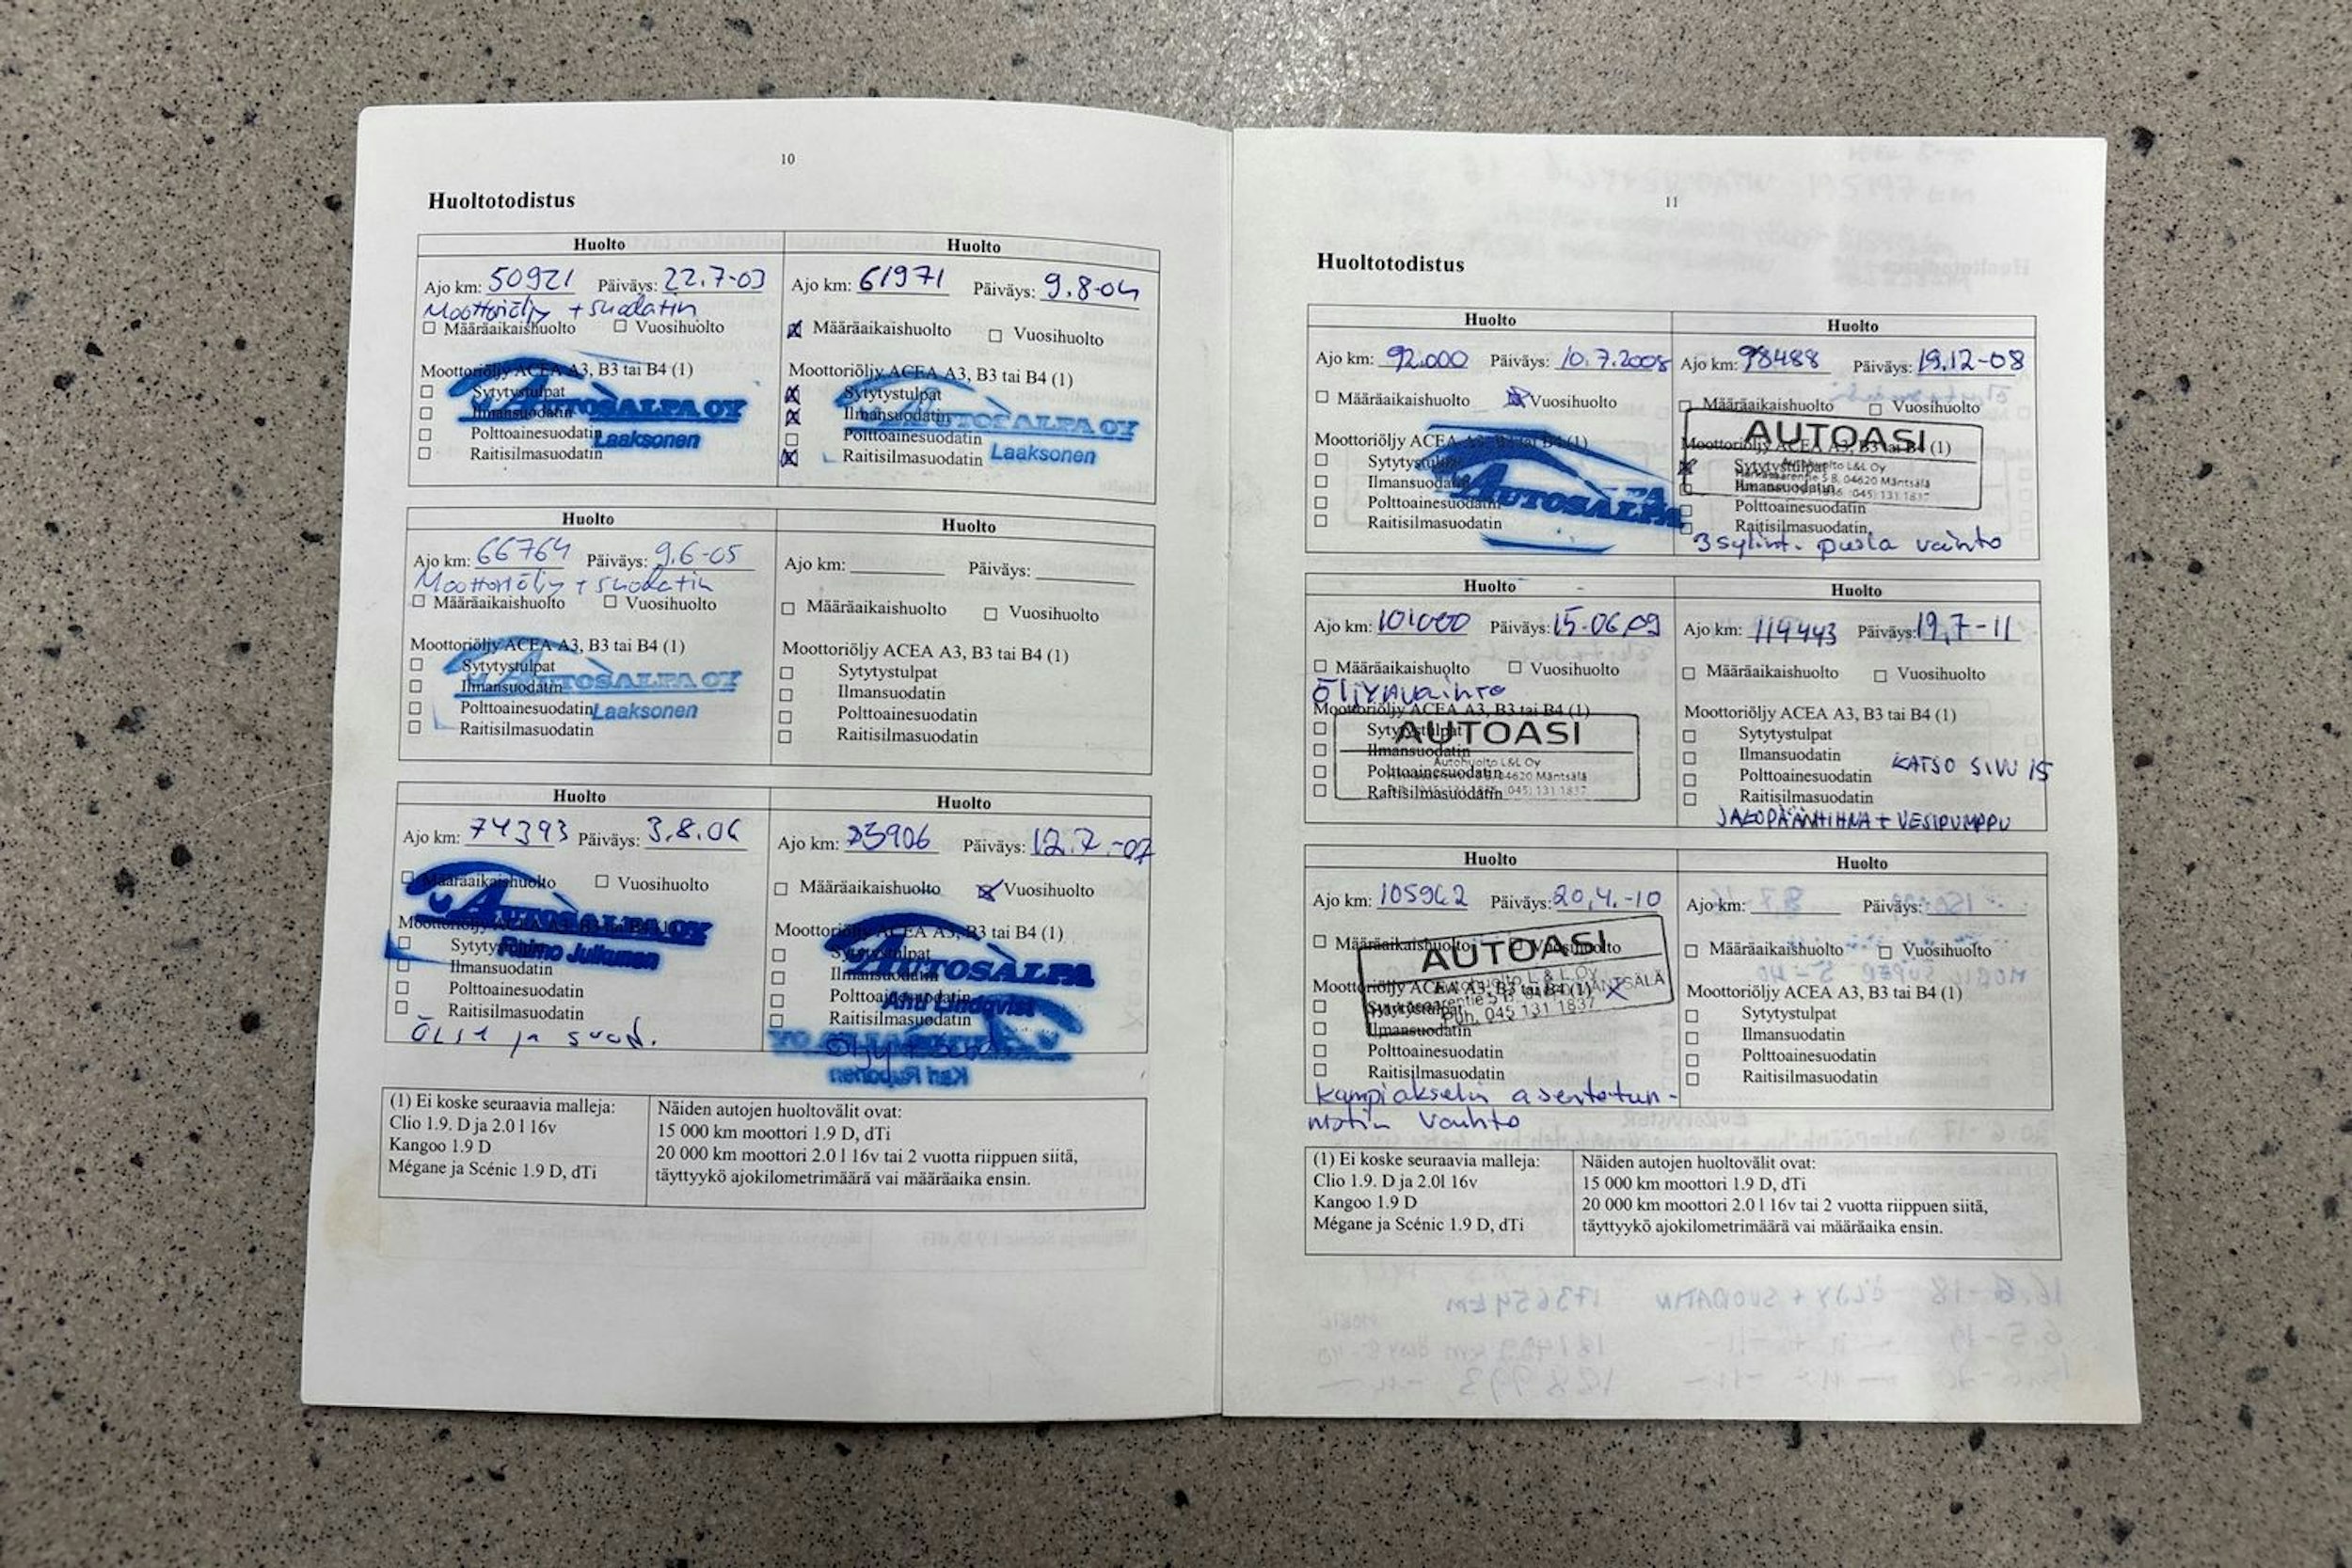 10
Huoltotodistus
Huolto
Ajo km: 50921 Päiväys: 22.7-03
Moottoriöljy + suodatin
Määräaikaishuolto Vuosihuolto
Moottoriöljy ACEA A3, B3 tai B4 (1)
Sytytystulpat
AUTOSALPA OY
Ilmansuodatin
Polttoainesuodatin
Laaksonen
Raitisilmasuodatin
Huolto
Ajo km: 61971 Päiväys: 9.8-04
Määräaikaishuolto Vuosihuolto
Moottoriöljy ACEA A3, B3 tai B4 (1)
Sytytystulpat
Ilmansuodatin
AUTOSALPA OY
Polttoainesuodatin
Raitisilmasuodatin
Laaksonen
Huolto
Ajo km: 66764 Päiväys: 9.6-05
Moottoriöljy + suodatin
Määräaikaishuolto Vuosihuolto
Moottoriöljy ACEA A3, B3 tai B4 (1)
Sytytystulpat
Ilmansuodatin
AUTOSALPA OY
Polttoainesuodatin
Laaksonen
Raitisilmasuodatin
Huolto
Ajo km: Päiväys:
Määräaikaishuolto Vuosihuolto
Moottoriöljy ACEA A3, B3 tai B4 (1)
Sytytystulpat
Ilmansuodatin
Polttoainesuodatin
Raitisilmasuodatin
Huolto
Ajo km: 74393 Päiväys: 3.8.06
Määräaikaishuolto Vuosihuolto
Moottoriöljy ACEA A3, B3 tai B4 (1)
AUTOSALPA OY
Sytytystulpat
Raimo Julkunen
Ilmansuodatin
Polttoainesuodatin
Raitisilmasuodatin
Huolto
Ajo km: Päiväys: 12.7.-07
Määräaikaishuolto Vuosihuolto
Moottoriöljy ACEA A3, B3 tai B4 (1)
Sytytystulpat
Ilmansuodatin
AUTOSALPA
Polttoainesuodatin
Lindqvist
Raitisilmasuodatin
(1) Ei koske seuraavia malleja:
Clio 1.9. D ja 2.0 l 16v
Kangoo 1.9 D
Mégane ja Scénic 1.9 D, dTi
Näiden autojen huoltovälit ovat:
15 000 km moottori 1.9 D, dTi
20 000 km moottori 2.0 l 16v tai 2 vuotta riippuen siitä,
täyttyykö ajokilometrimäärä vai määräaika ensin.
11
Huoltotodistus
Huolto
Ajo km: 92.000 Päiväys: 10.7.2008
Määräaikaishuolto Vuosihuolto
Moottoriöljy ACEA A3, B3 tai B4 (1)
Sytytystulpat
Ilmansuodatin
AUTOSALPA
Polttoainesuodatin
Raitisilmasuodatin
Huolto
Ajo km: 98488 Päiväys: 19.12-08
Määräaikaishuolto Vuosihuolto
AUTOASI
Moottoriöljy ACEA A3, B3 tai B4 (1)
Sytytystulpat
Autohuolto L&L Oy
Ilmansuodatin
5 B, 04620 Mäntsälä
(045) 131 1837
Polttoainesuodatin
Raitisilmasuodatin
3 sylint. puola vaihto
Huolto
Ajo km: 101000 Päiväys: 15-06.09
Määräaikaishuolto Vuosihuolto
Öljynvaihto
Moottoriöljy ACEA A3, B3 tai B4 (1)
Sytytystulpat
AUTOASI
Ilmansuodatin
Autohuolto L&L Oy
Polttoainesuodatin
04620 Mäntsälä
Raitisilmasuodatin
(045) 131 1837
Huolto
Ajo km: 114443 Päiväys: 19.7-11
Määräaikaishuolto Vuosihuolto
Moottoriöljy ACEA A3, B3 tai B4 (1)
Sytytystulpat
Ilmansuodatin
KATSO SIVU 15
Polttoainesuodatin
Raitisilmasuodatin
JAKOPÄÄNHIHNA + VESIPUMPPU
Huolto
Ajo km: 105962 Päiväys: 20.4.-10
Määräaikaishuolto Vuosihuolto
AUTOASI
Moottoriöljy ACEA A3, B3 tai B4 (1)
Autohuolto L & L OY
MÄNTSÄLÄ
Sytytystulpat
Puh. 045 131 1837
Ilmansuodatin
Polttoainesuodatin
Raitisilmasuodatin
Kampiakselin asentotun-
nistin vaihto
Huolto
Ajo km: Päiväys:
Määräaikaishuolto Vuosihuolto
Moottoriöljy ACEA A3, B3 tai B4 (1)
Sytytystulpat
Ilmansuodatin
Polttoainesuodatin
Raitisilmasuodatin
(1) Ei koske seuraavia malleja:
Clio 1.9. D ja 2.0l 16v
Kangoo 1.9 D
Mégane ja Scénic 1.9 D, dTi
Näiden autojen huoltovälit ovat:
15 000 km moottori 1.9 D, dTi
20 000 km moottori 2.0 l 16v tai 2 vuotta riippuen siitä,
täyttyykö ajokilometrimäärä vai määräaika ensin.